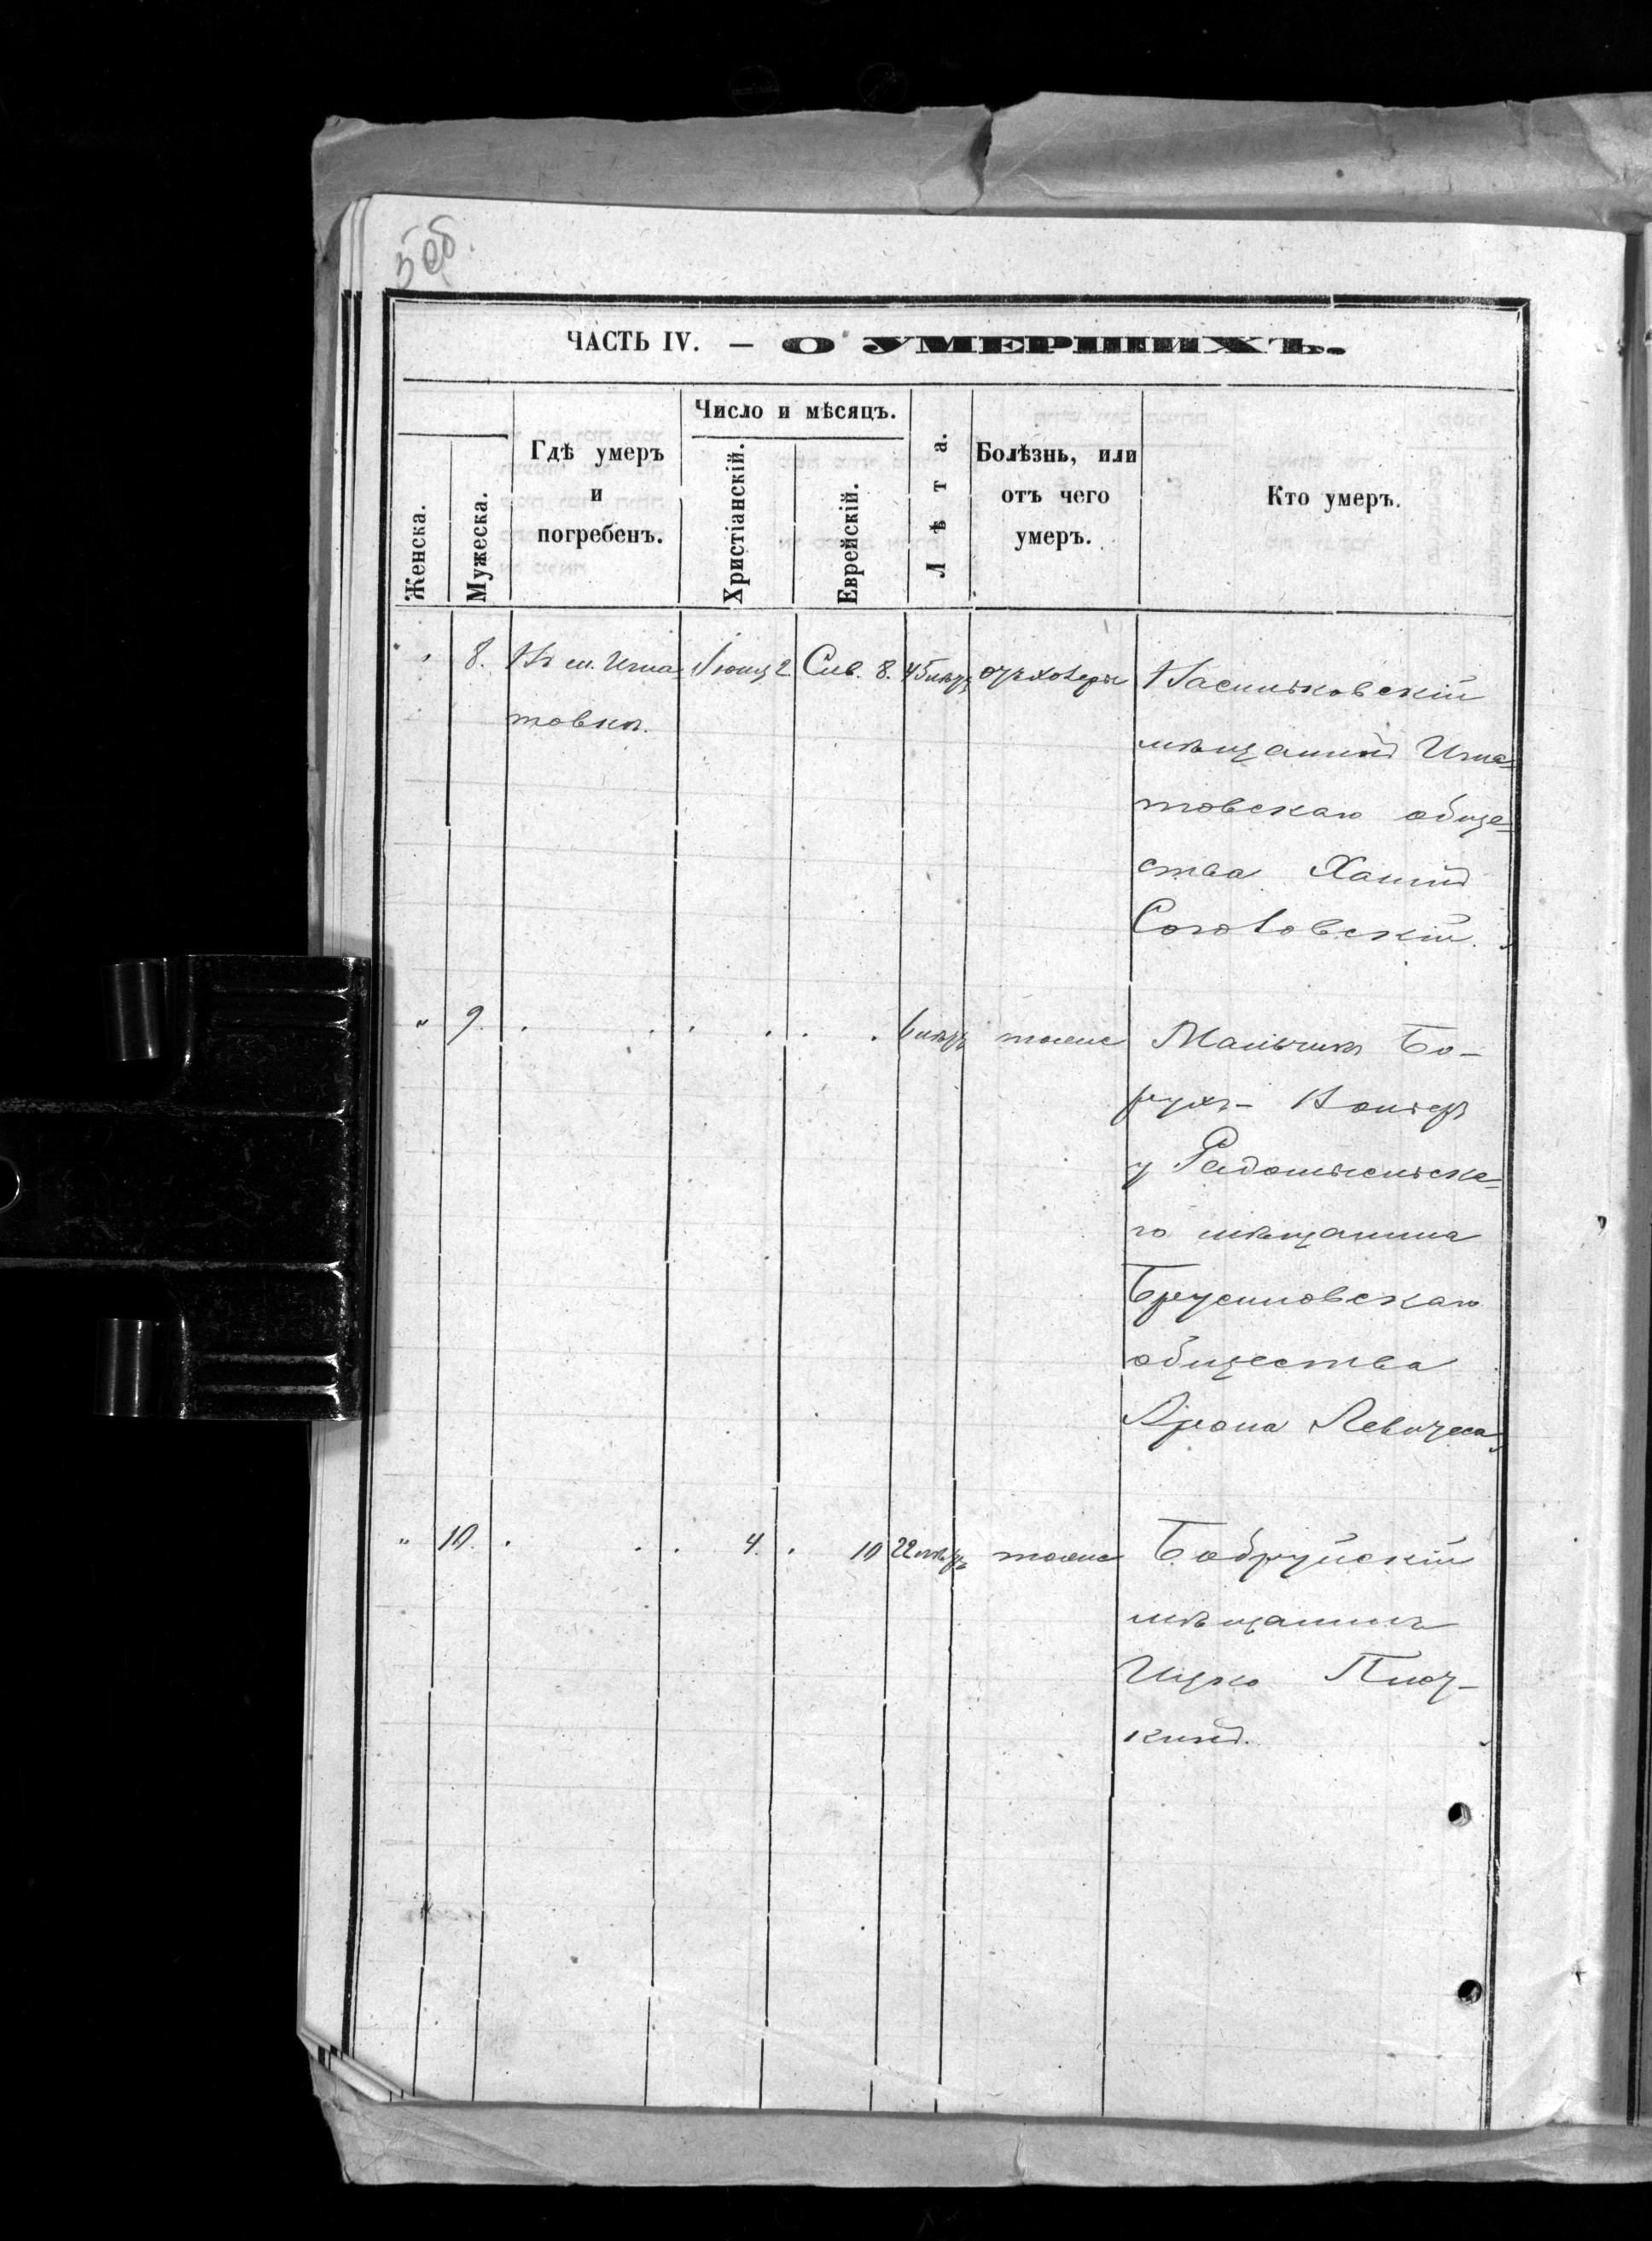 5 об.
ЧАСТЬ IV. — О УМЕРШИХЪ.
Женска.
Мужеска.
Гдѣ умеръ
и
погребенъ.
Число и мѣсяцъ.
Христіанскій.
Еврейскій.
Лѣта.
Болѣзнь, или
отъ чего
умеръ.
Кто умеръ.
" 8. Въ м. Игна- Іюня 2 Сив. 8. 45 лѣтъ отъ холеры Васильковскій
товкѣ. мѣщанинъ Игна-
товскаго обще-
ства Хаимъ
Соголовскій.
" 9. " " " " " " 6 лѣтъ тоже Мальчикъ Бо-
рухъ-
у Радомысльска-
го мѣщанина
Брусиловскаго
общества
Арона
" 10. " " " 4. " 10 22 лѣтъ тоже Бобруйскій
мѣщанинъ
Ицко
кинъ.